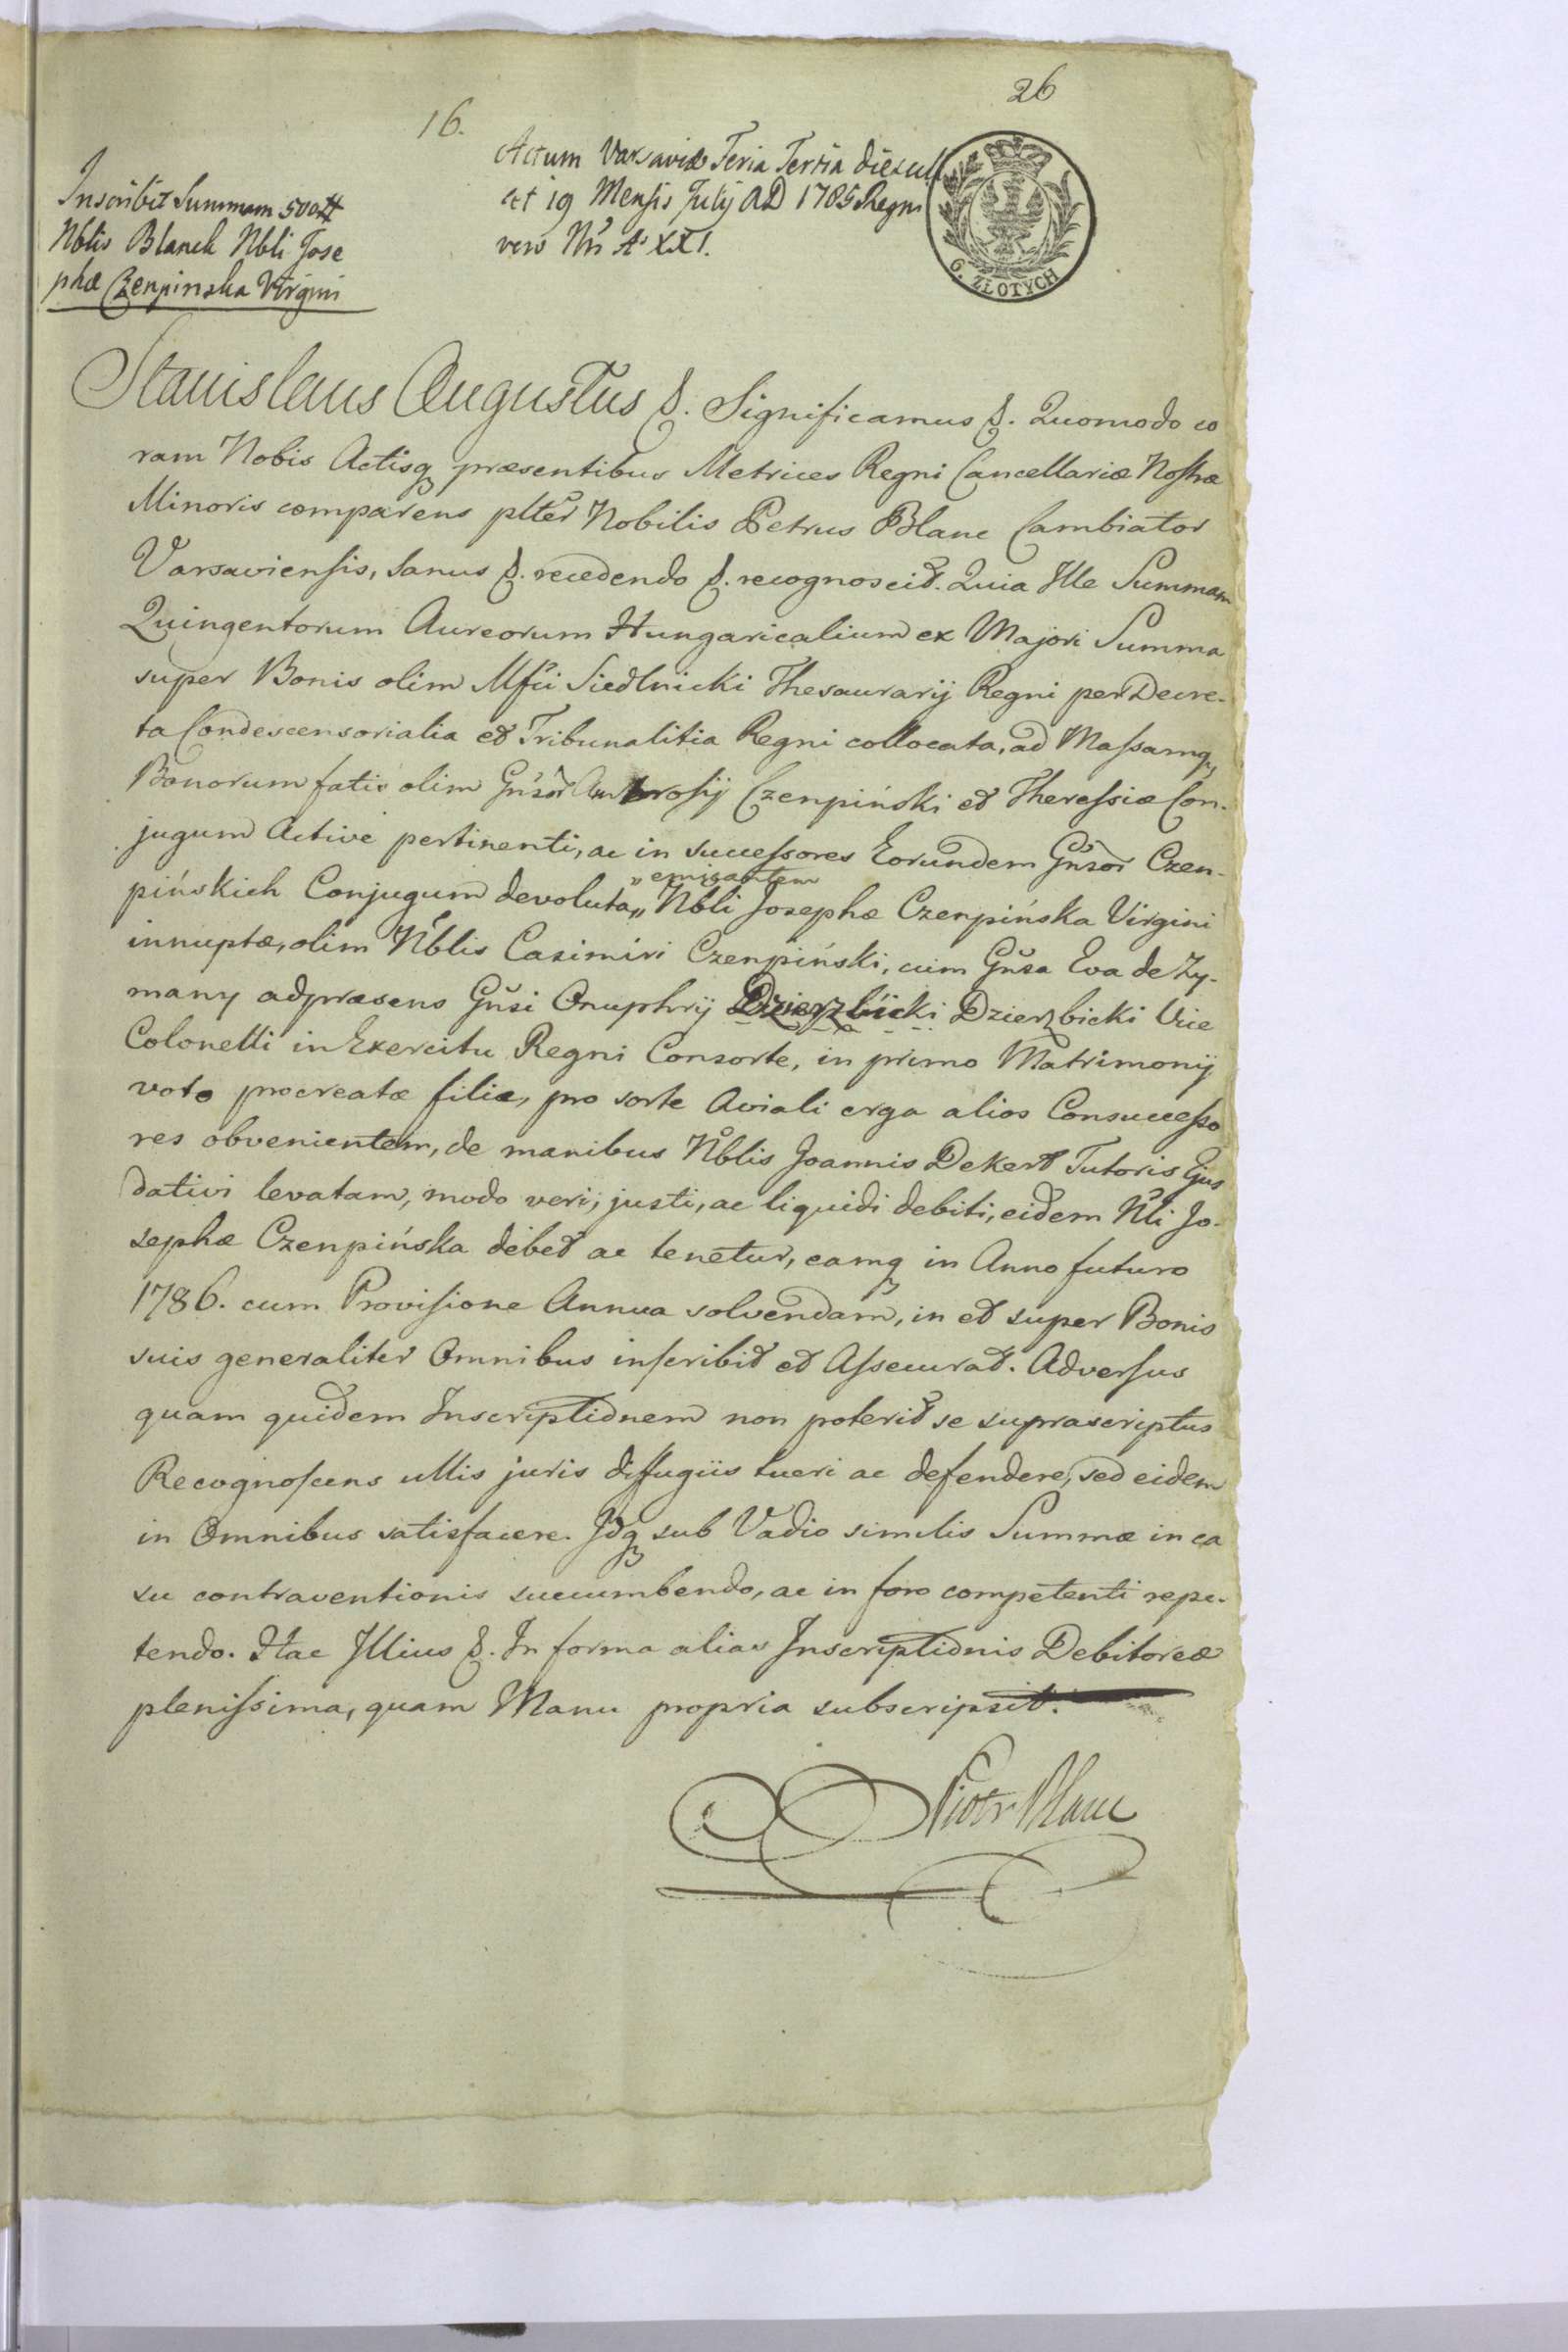 26
16.
Actum Varsaviæ Feria Tertia die
et 19 Mensis Julij AD 1785 Regni
vero Nri A° XXI.
6. ZŁOTYCH
Inscribit Summam 500
Nblis Blanck Nbli Jose
phæ Czenpinska Virgini
Stanislaus Augustus &. Significamus &. Quomodo co
ram Nobis Actisq præsentibus Metrices Regni Cancellariæ Nostræ
Minoris comparens plter Nobilis Petrus Blanc Cambiator
Varsaviensis, Sanus &. recedendo &. recognoscit. Quia Ille Summam
Quingentorum Aureorum Hungaricalium ex Majori Summa
super Bonis olim Mfci Siedlnicki Thesaurarij Regni per Decre-
ta Condescensorialia et Tribunalitia Regni collocata, ad Massamq
Bonorum fatis olim Gnsor Ambrosij Czenpiński et Theressiæ Con-
jugum Active pertinenti, ac in successores Eorundem Gnsor Czen-
" emigantem
pińskich Conjugum devoluta " Nbli Josephæ Czenpińska Virgini
innuptæ, olim Nblis Casimiri Czenpiński, cum Gnsa Eva de Zy-
many adpræsens Gnsi Onuphrij Dzierzbicki Dzierzbicki Vice
Colonelli in Exercitu Regni Consorte, in primo Matrimonij
voto procreatæ filiæ, pro sorte Aviali erga alios Consuccesso
res obvenientem, de manibus Nblis Joannis Dekert Tutoris Ejus
dativi levatam, modo veri, justi, ac liquidi debiti, eidem Nli Jo-
sephæ Czenpińska debet ac tenetur, eamq in Anno futuro
1786. cum Provisione Annua solvendam, in et super Bonis
suis generaliter Omnibus inscribit et Assecurat. Adversus
quam quidem Inscriptionem non poterit se suprascriptus
Recognoscens ullis juris diffugiis tueri ac defendere, sed eidem
in Omnibus satisfacere. Idq sub Vadio similis Summæ in ca
su contraventionis succumbendo, ac in foro competenti repe-
tendo. Hac Illius &. In forma alias Inscriptionis Debitoreæ
plenissima, quam Manu propria subscripsit.
Piotr Blanc